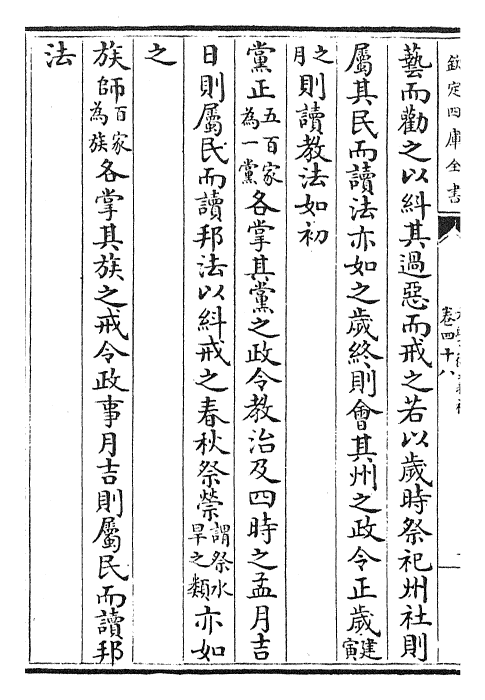 欽定四庫全書
卷四十八
藝而勸之以糾其過惡而戒之若以歲時祭祀州社則
屬其民而讀法亦如之歲終則會其州之政令正歲建寅
之月則讀教法如初
黨正五百家為一黨各掌其黨之政令教治及四時之孟月吉
日則屬民而讀邦法以糾戒之春秋祭禜謂祭水旱之類亦如
之
族師百家為族各掌其族之戒令政事月吉則屬民而讀邦
法